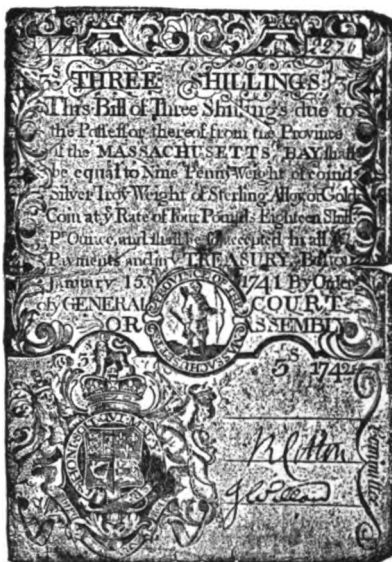 2276
3S THREE SHILLINGS 3S
This Bill of Three Shillings due to
the Possessor thereof from the Province
of the MASSACHUSETTS BAY shall
be equal to Nine Penny Weight of coind
Silver Troy Weight of Sterling Alloy or Gold
Coin at ye Rate of Four Pounds Eighteen Shill
Pr Ounce, and shall be so accepted In all
Payments and in ye TREASURY. Boston
January 15. 1741 By Order
of ye GENERAL COURT
OR ASSEMBLY
PROVINCE OF THE MASSACHUSETTS
3S 1742
HONI SOIT QUI MAL
R Cotton
Committee